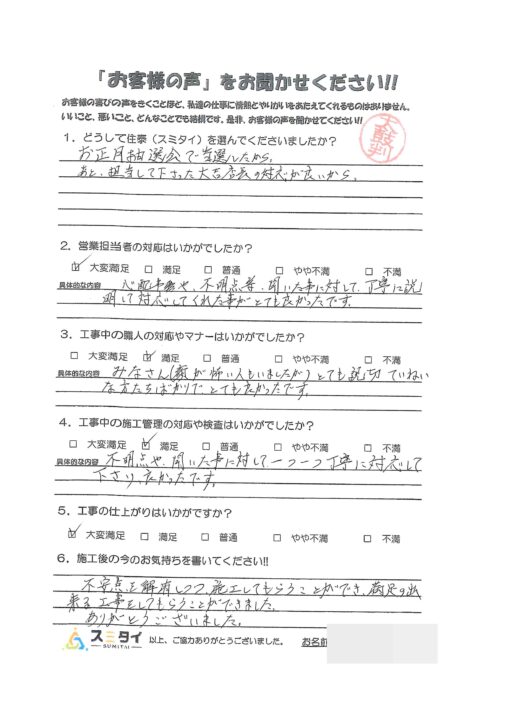 「お客様の声」をお聞かせください!!
お客様の喜びの声をきくことほど、私達の仕事に情熱とやりがいをあたえてくれるものはありません。
いいこと、悪いこと、どんなことでも結構です。是非、お客様の声を聞かせてください!!
1．どうして住泰（スミタイ）を選んでくださいましたか？
お正月抽選会で当選したから。
あと、担当して下さった大吉店長の対応が良いから。
2．営業担当者の対応はいかがでしたか？
☑ 大変満足 □ 満足 □ 普通 □ やや不満 □ 不満
具体的な内容 心配事や、不明点等、聞いた事に対して、丁寧に説
明して対応してくれた事がとても良かったです。
3．工事中の職人の対応やマナーはいかがでしたか？
□ 大変満足 ☑ 満足 □ 普通 □ やや不満 □ 不満
具体的な内容 みなさん(顔が怖い人もいましたが)とても親切、ていねい
な方たちばかりで、とても良かったです。
4．工事中の施工管理の対応や検査はいかがでしたか？
□ 大変満足 ☑ 満足 □ 普通 □ やや不満 □ 不満
具体的な内容 不明点や、聞いた事に対して、一つ一つ丁寧に対応して
下さり、良かったです。
5．工事の仕上がりはいかがですか？
☑ 大変満足 □ 満足 □ 普通 □ やや不満 □ 不満
6．施工後の今のお気持ちを書いてください!!
不安点を解消しつつ、施工してもらうことができ、満足の出
来る工事をしてもらうことができました。
ありがとうございました。
スミタイ 以上、ご協力ありがとうございました。 お名前
SUMITAI